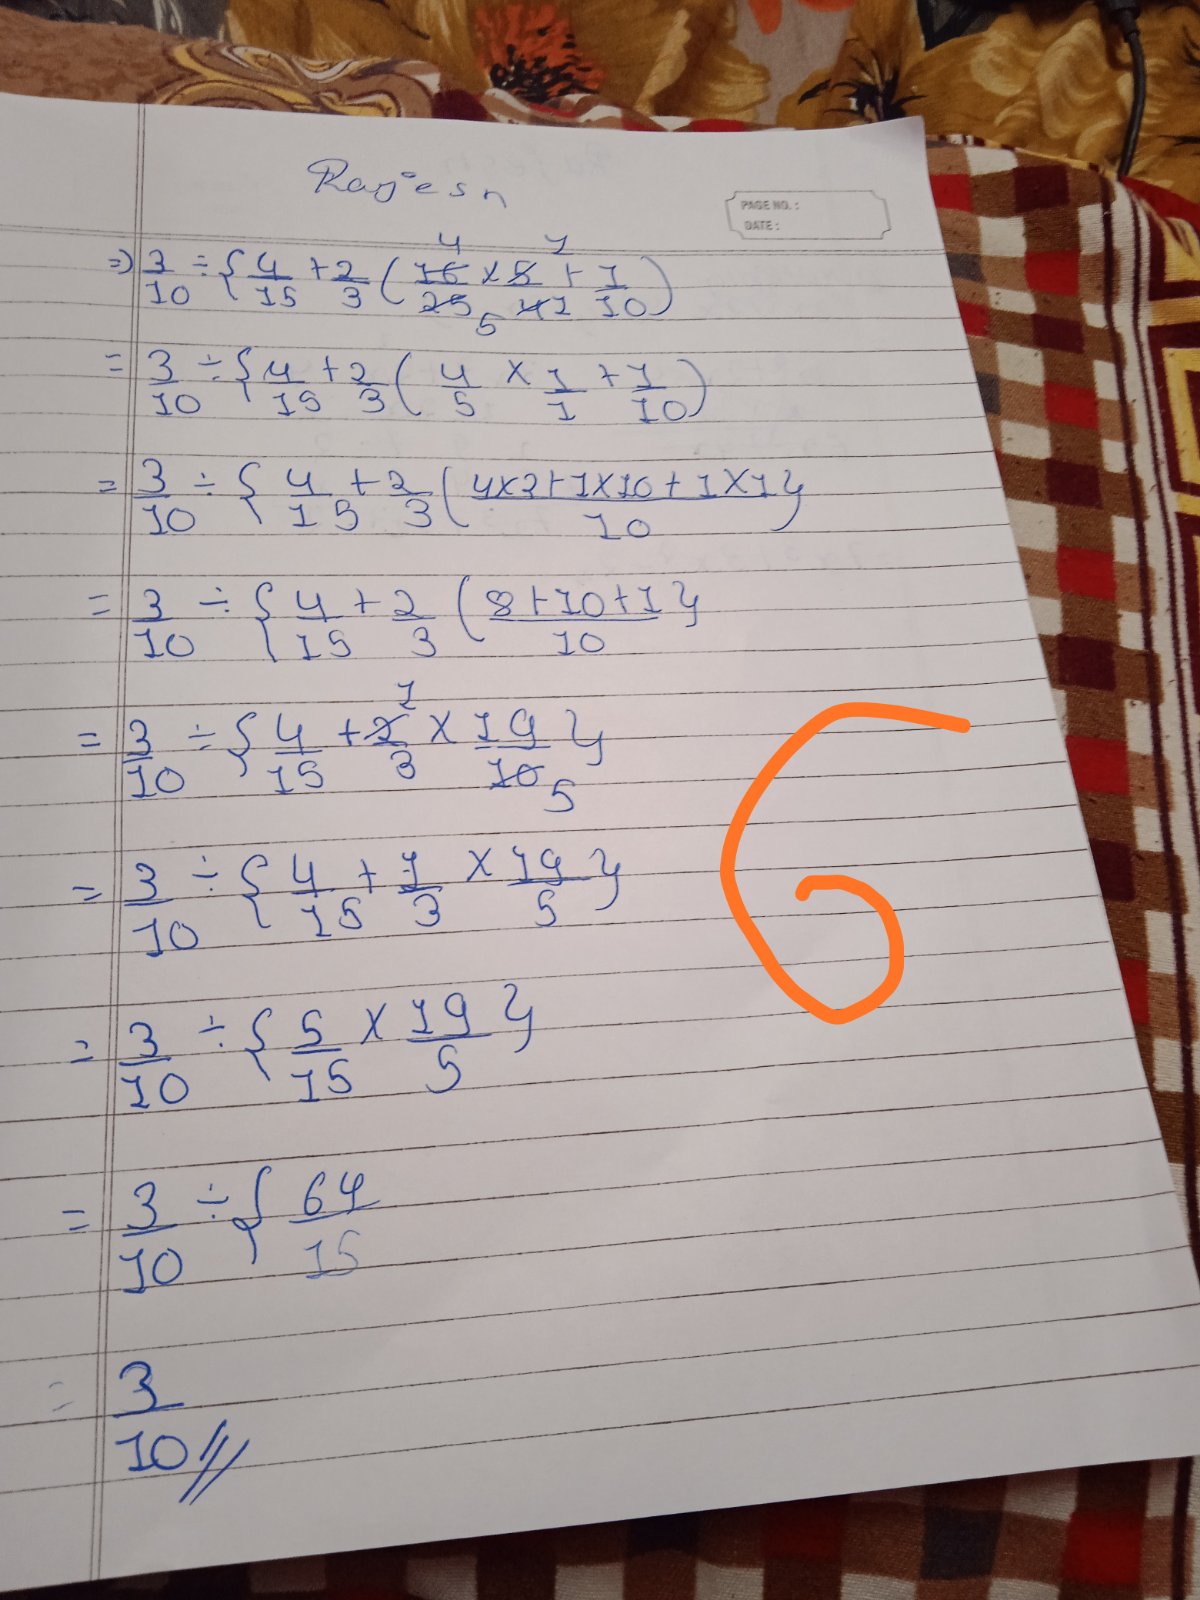 Rajesh
PAGE NO. :
DATE :
4 1
=> 3/10 ÷ { 4/15 + 2/3 ( 16/25 × 5/4 + 1/10 )
5 1
= 3/10 ÷ { 4/15 + 2/3 ( 4/5 × 1/1 + 1/10 )
= 3/10 ÷ { 4/15 + 2/3 ( 4×2+1×10+1×1/10 }
= 3/10 ÷ { 4/15 + 2/3 ( 8+10+1/10 }
1
= 3/10 ÷ { 4/15 + 2/3 × 19/10 }
5
= 3/10 ÷ { 4/15 + 1/3 × 19/5 }
= 3/10 ÷ { 5/15 × 19/5 }
= 3/10 ÷ { 64/15
= 3/10 //
6